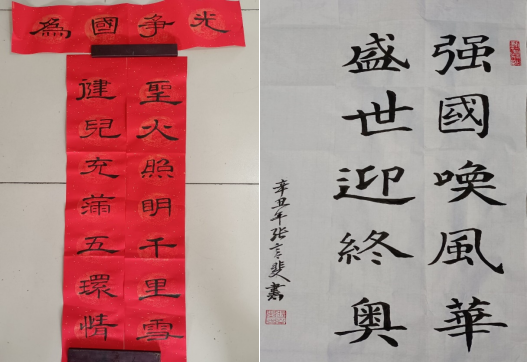 為國爭光
聖火照明千里雪
健兒充滿五環情
强國喚風華
盛世迎終奧
辛丑年张言斐書